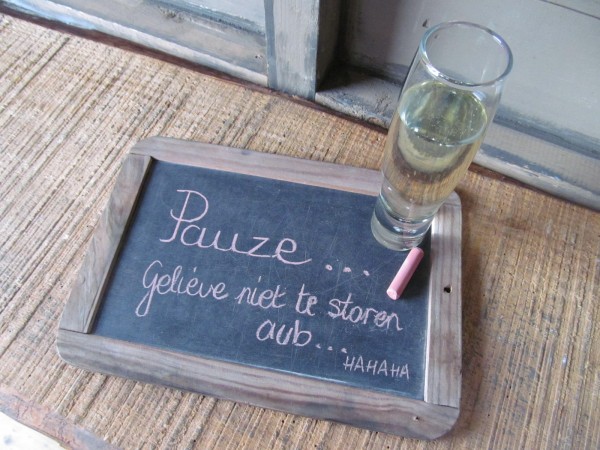 Pauze ...
Gelieve niet te storen
aub...
HAHAHA